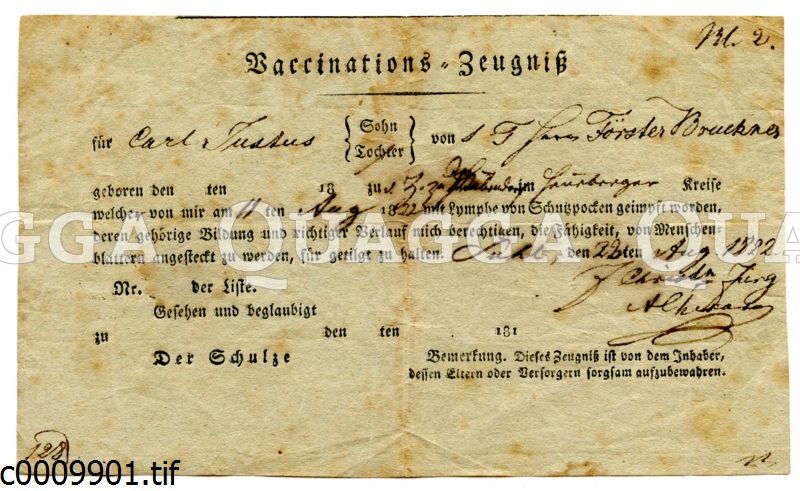 Nr. 2.
Vaccinations-Zeugniß
für Carl Justus {Sohn Tochter} von Herrn Förster Bruckner
geboren den ten 18 zu im Henneberger Kreise
welcher von mir am 11 ten Aug 1822 mit Lymphe von Schutzpocken geimpft worden,
deren gehörige Bildung und richtiger Verlauf mich berechtigen, die Fähigkeit, von Menschen-
blattern angesteckt zu werden, für getilgt zu halten. Suhl, den 22ten Aug 1822
Nr. der Liste.
Gesehen und beglaubigt
zu den ten 181
Der Schulze
Bemerkung. Dieses Zeugniß ist von dem Inhaber,
dessen Eltern oder Versorgern sorgsam aufzubewahren.
128
QUAGGA QUAGGA QUAGGA
c0009901.tif